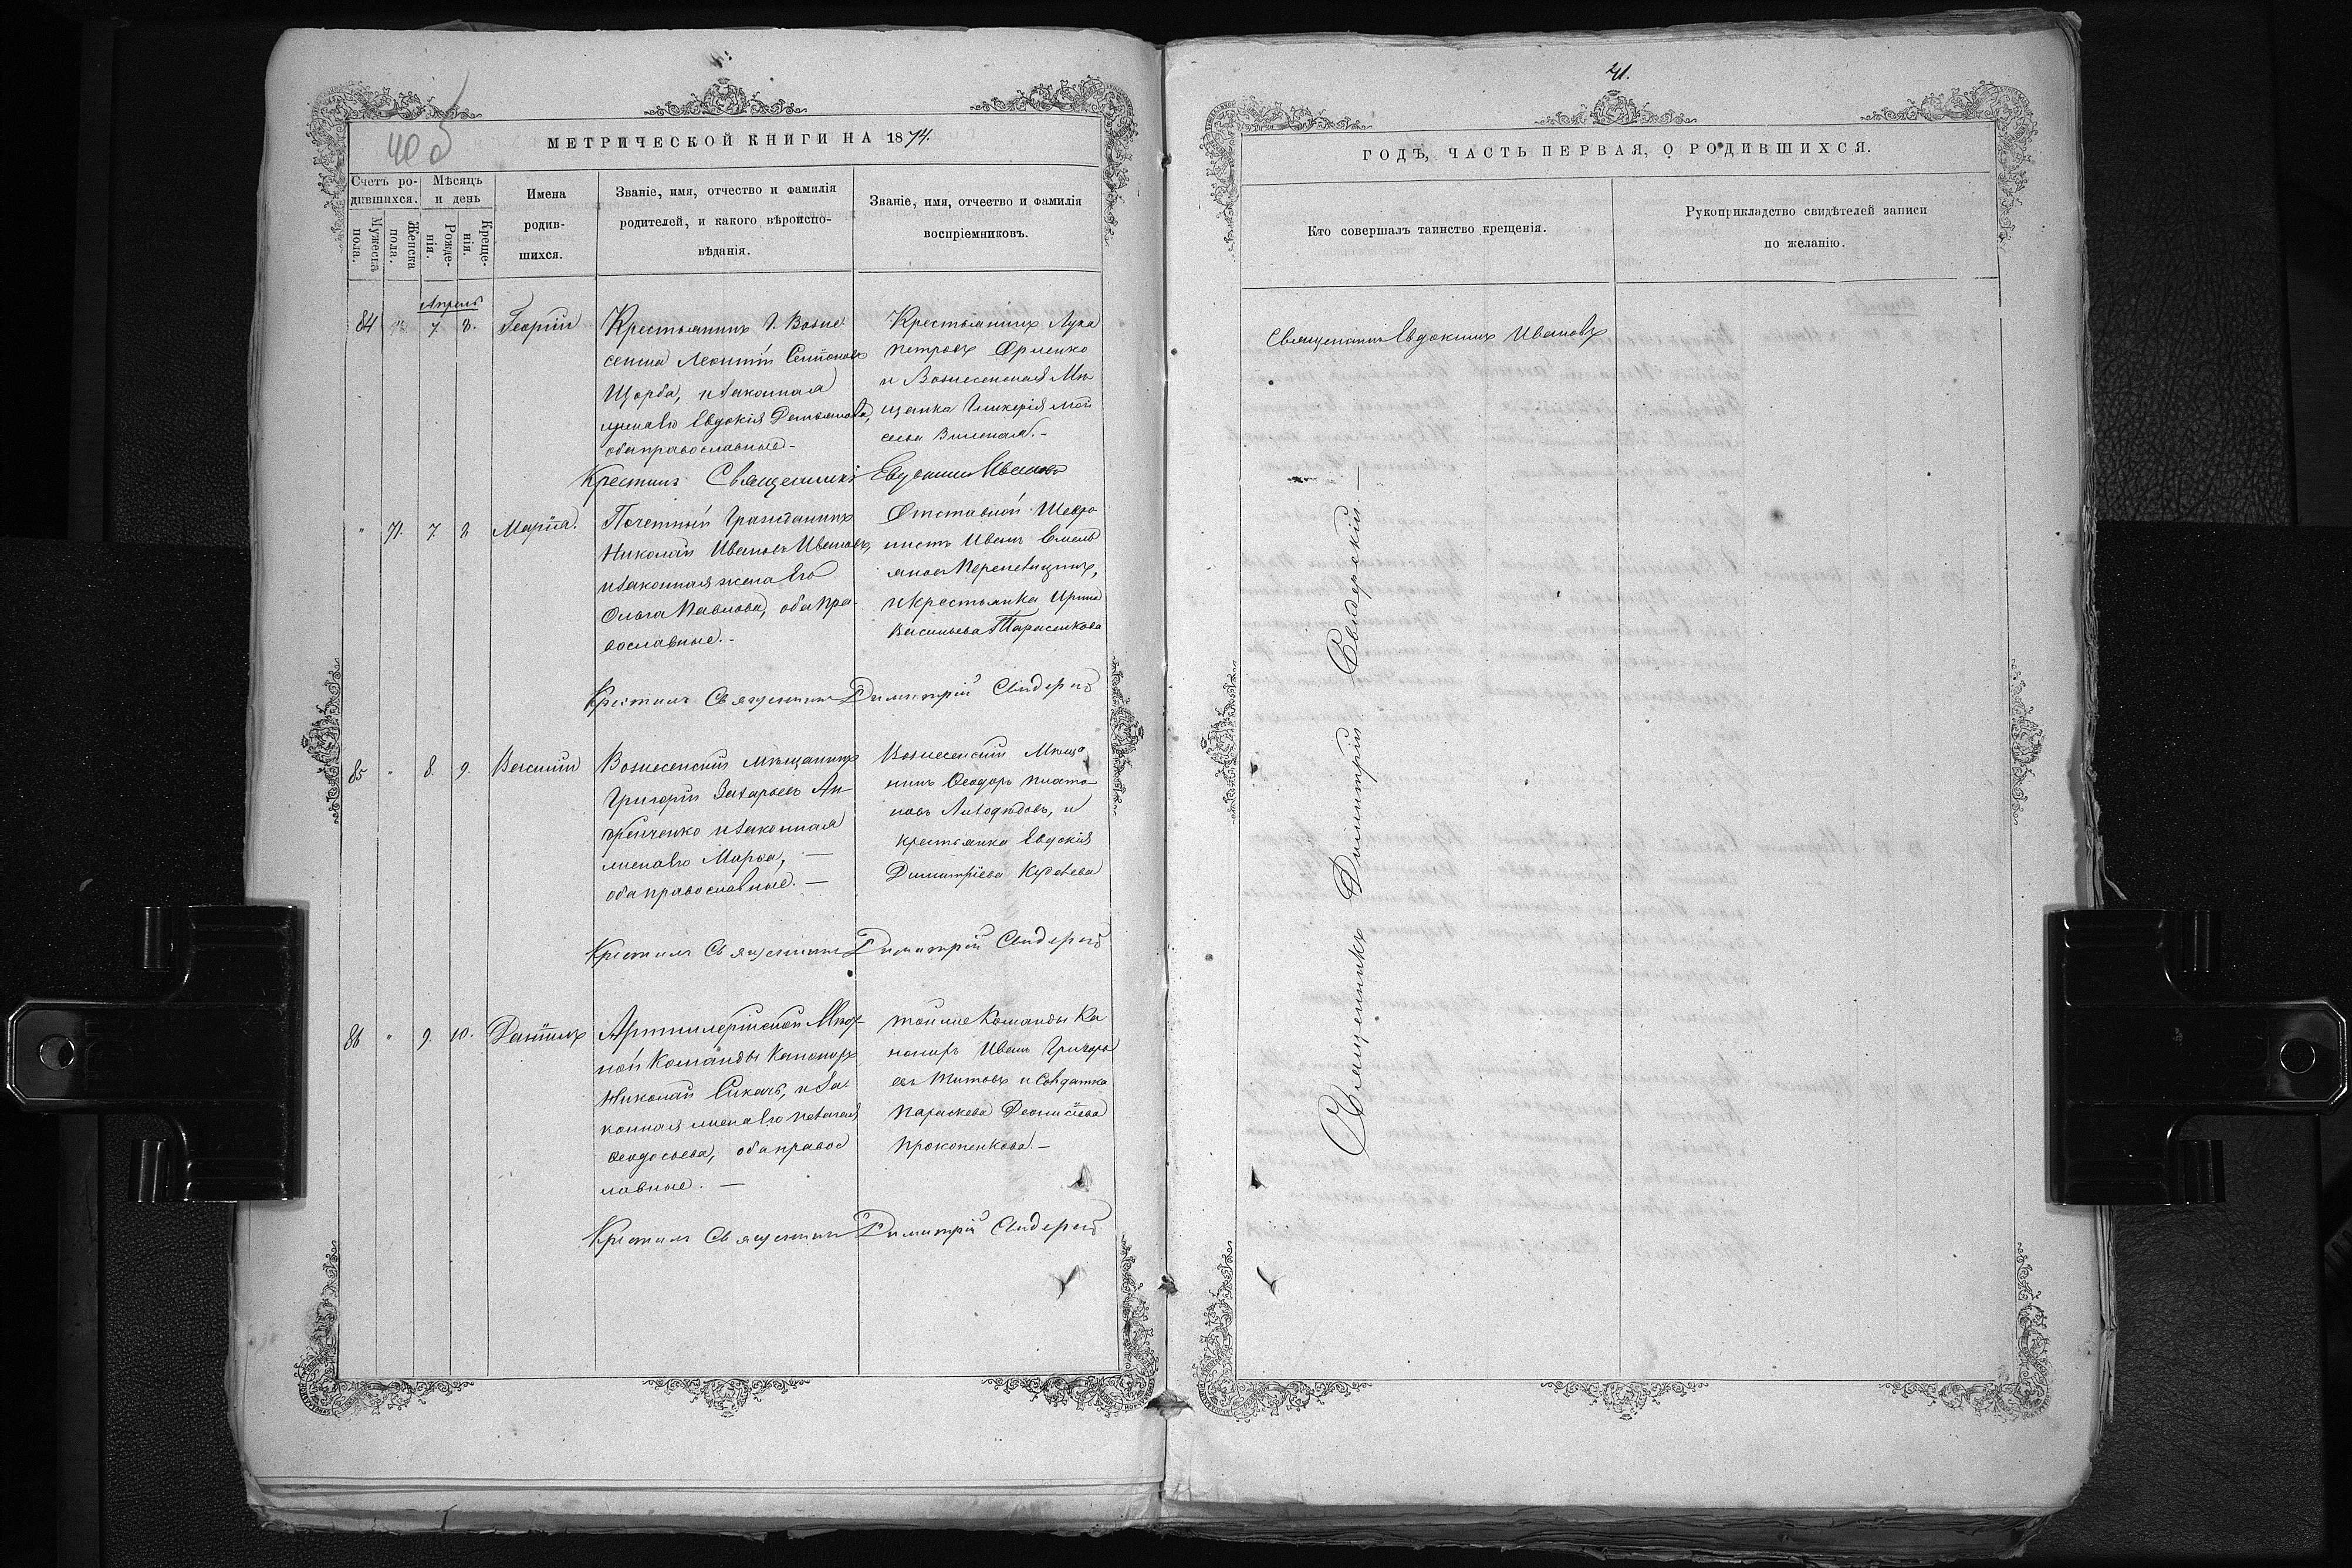 40 об
МЕТРИЧЕСКОЙ КНИГИ НА 1874.
Счетъ ро-
дившихся.
Мужеска
пола.
Женска
пола.
Мѣсяцъ
и день
Рожде-
нія.
Креще-
нія.
Имена
родив-
шихся.
Званіе, имя, отчество и фамилія
родителей, и какого вѣроиспо-
вѣданія.
Званіе, имя, отчество и фамилія
воспріемниковъ.
Апрель
84 7. 8. Георгій
Крестьянинъ Г. Возне
сенска Леонтій
Щорба, и законная
жена его Евдокія Демьянова,
оба православные-
Крестьянинъ Лука
Петровъ
и Вознесенская Мѣ
щанка Гликерія Мои
сеева
Крестилъ Священникъ Евдокимъ Ивановъ
" 71. 7. 8 Марія.
Почетный Гражданинъ
Николай Ивановъ Ивановъ,
и законная жена его
Ольга Павлова, оба пра
вославные.-
Отставной
Иванъ Емель
яновъ
и крестьянка Ирина
Васильева Тарасенкова
Крестилъ Священникъ Димитрій Свидерскій
85 " 8. 9. Василій
Вознесенскій Мѣщанинъ
Григорій Захарьевъ
и законная
жена его Марѳа, —
оба православные. —
Вознесенскій Мѣща
нинъ Ѳеодоръ Плато
новъ и
крестьянка Евдокія
Димитріева
Крестилъ Священникъ Димитрій Свидерскій
86 " 9. 10. Даніилъ
Артилерійской Мѣст-
ной Команды Канониръ
Николай Сикачъ, и за
конная жена его Пелагея
Ѳеодосьева, оба правос
лавные. —
той же Команды Ка
нониръ Иванъ Григорь
евъ Титовъ и Солдатка
Параскева Деонисіева
Прокопенкова —
Крестилъ Священникъ Димитрій Свидерскій
41.
ГОДЪ, ЧАСТЬ ПЕРВАЯ, О РОДИВШИХСЯ.
Кто совершалъ таинство крещенія.
Рукоприкладство свидѣтелей записи
по желанію.
Священникъ Евдокимъ Ивановъ
Священникъ Димитрій Свидерскій —